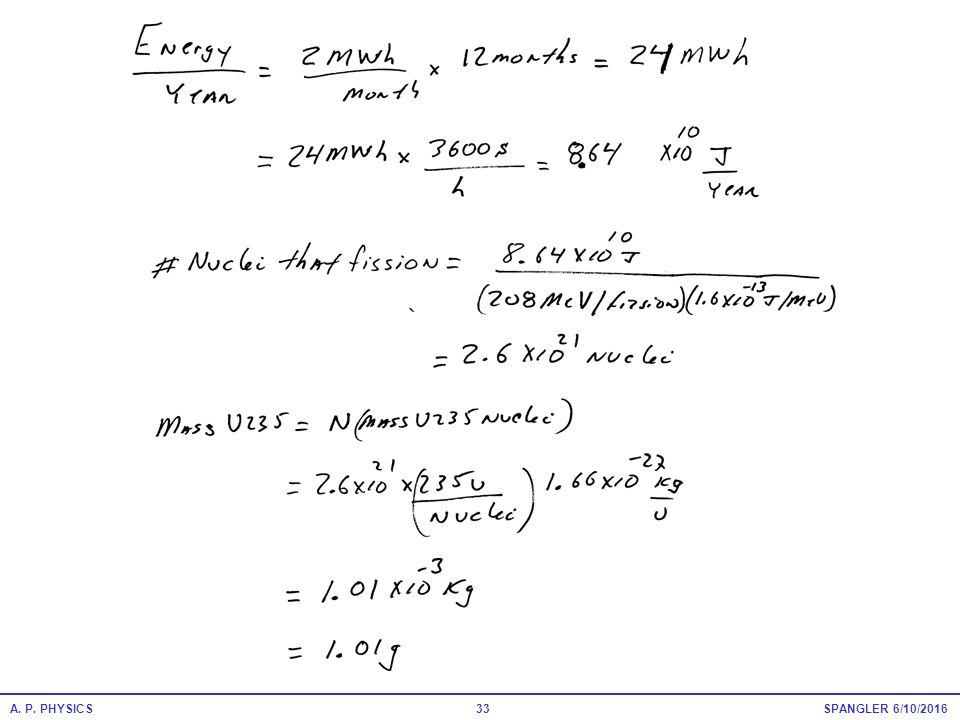 Energy/Year = 2 MWh/month × 12 months = 24 MWh
= 24 MWh × 3600 s/h = 8.64 ×10^10 J/Year
# Nuclei that fission = 8.64 ×10^10 J / (208 MeV/fission)(1.6×10^-13 J/MeV)
= 2.6 ×10^21 Nuclei
Mass U235 = N(mass U235 Nuclei)
= 2.6×10^21 × (235 U/Nuclei) 1.66×10^-27 Kg/U
= 1.01 ×10^-3 Kg
= 1.01g
A. P. PHYSICS 33 SPANGLER 6/10/2016